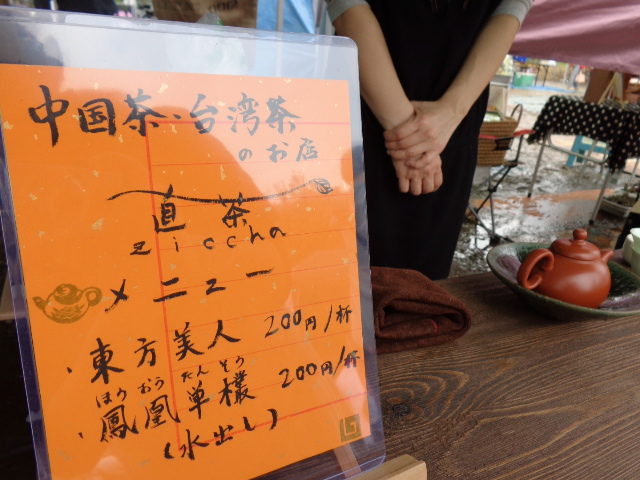 中国茶・台湾茶
のお店
直茶
ziccha
メニュー
・東方美人 200円/杯
ほうおうたんそう
・鳳凰単欉 200円/杯
(水出し)